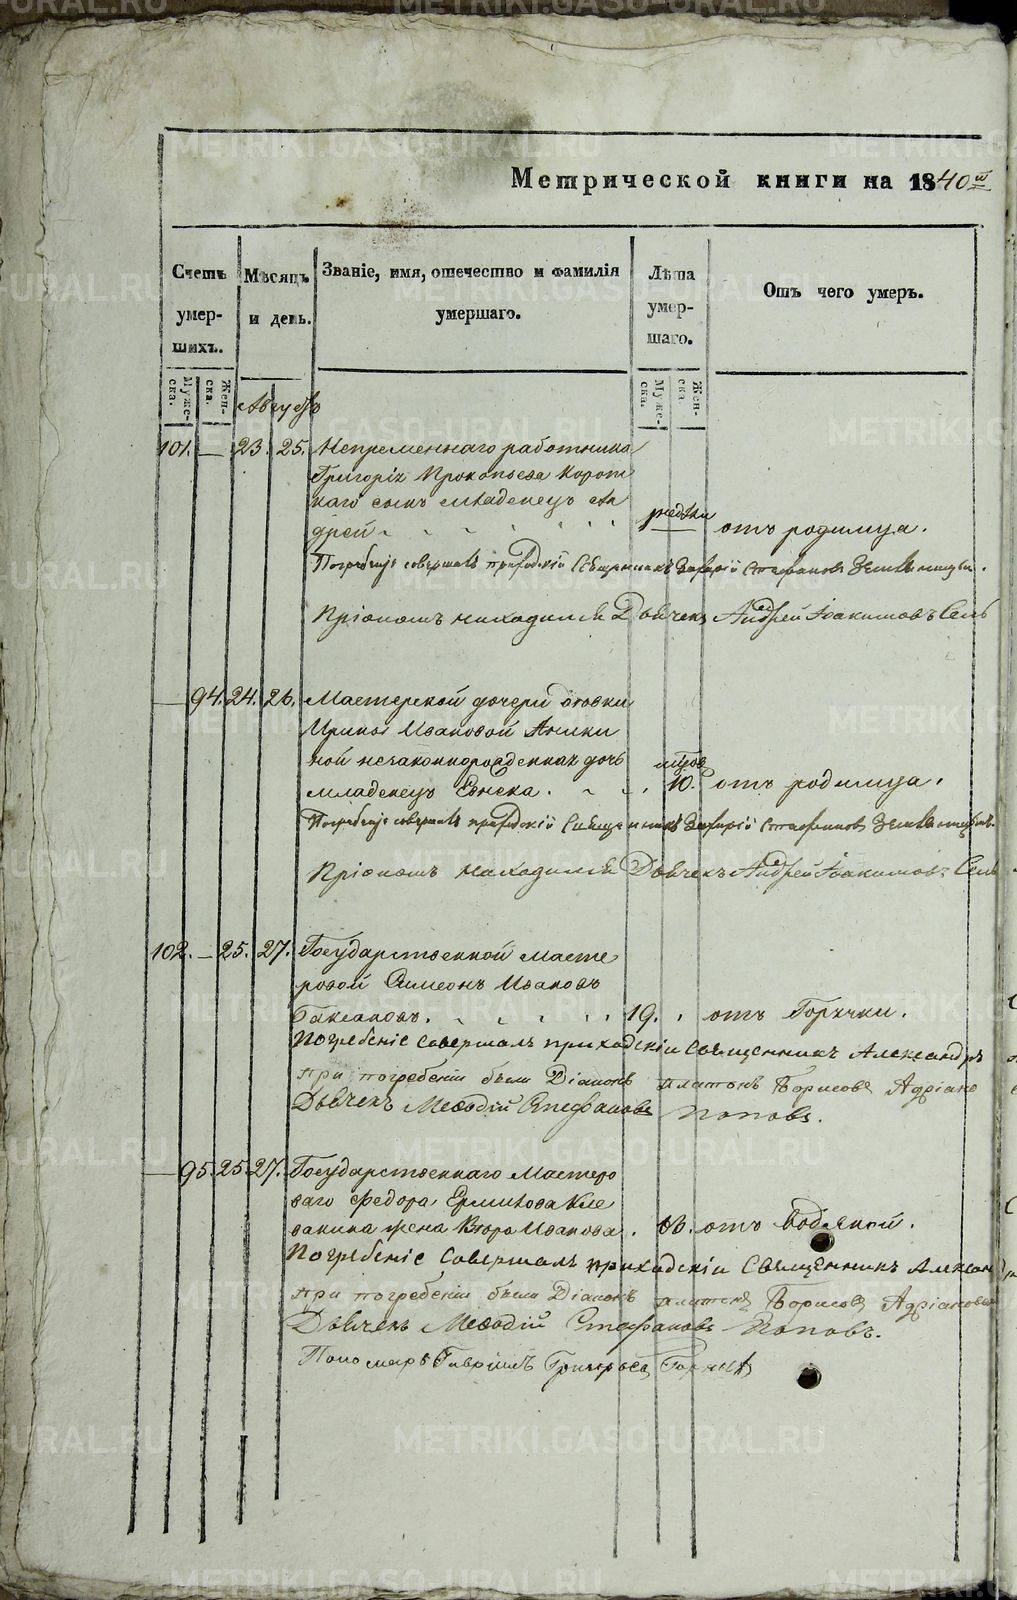 Метрической книги на 1840й
Счетъ умершихъ.
Мѣсяцъ и день.
Званіе, имя, отечество и фамилія умершаго.
Лѣта умершаго.
Отъ чего умеръ.
Мужеска.
Женска.
Мужеска.
Женска.
Августъ
101. — 23. 25. Непременнаго работника
Григорія Прокопьева Корот
каго сынъ младенецъ Ан
дрей недѣли отъ родимца.
Погребеніе совершалъ приходскій Священникъ Стефановъ
Приономъ находился Дьячекъ Андрей Іоакимовъ
— 94. 24. 26. Мастерской дочери дѣвки
Ирины Ивановой Аники
ной незаконнорожденная дочь
младенецъ 10. отъ родимца.
Погребеніе совершалъ приходскій Священникъ Стефановъ
Приономъ находился Дьячекъ Андрей Іоакимовъ
102. — 25. 27. Государственной масте
ровой Симеонъ Ивановъ
19. отъ Горячки.
Погребеніе совершалъ приходскій Священникъ Александръ
при погребеніи были Діаконъ Платонъ Борисовъ
Дьячекъ Меѳодій Стефановъ Поповъ.
— 95. 25. 27. Государственнаго Мастеро
ваго Федора Ермилова Кле
вакина жена Ивановa. отъ водяной.
Погребеніе совершалъ приходскій Священникъ Алексан
при погребеніи были Діаконъ Платонъ Борисовъ
Дьячекъ Меѳодій Стефановъ Поповъ.
Пономарь Гавріилъ Григорьевъ
METRIKI.GASO-URAL.RU